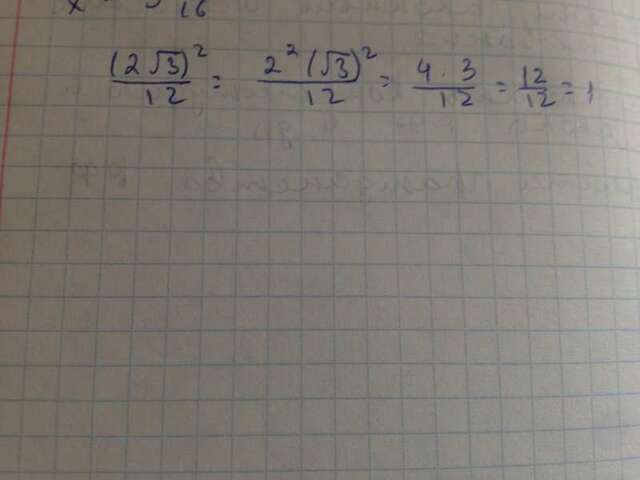 x 16
(2√3)²/12 = 2²(√3)²/12 = 4·3/12 = 12/12 = 1